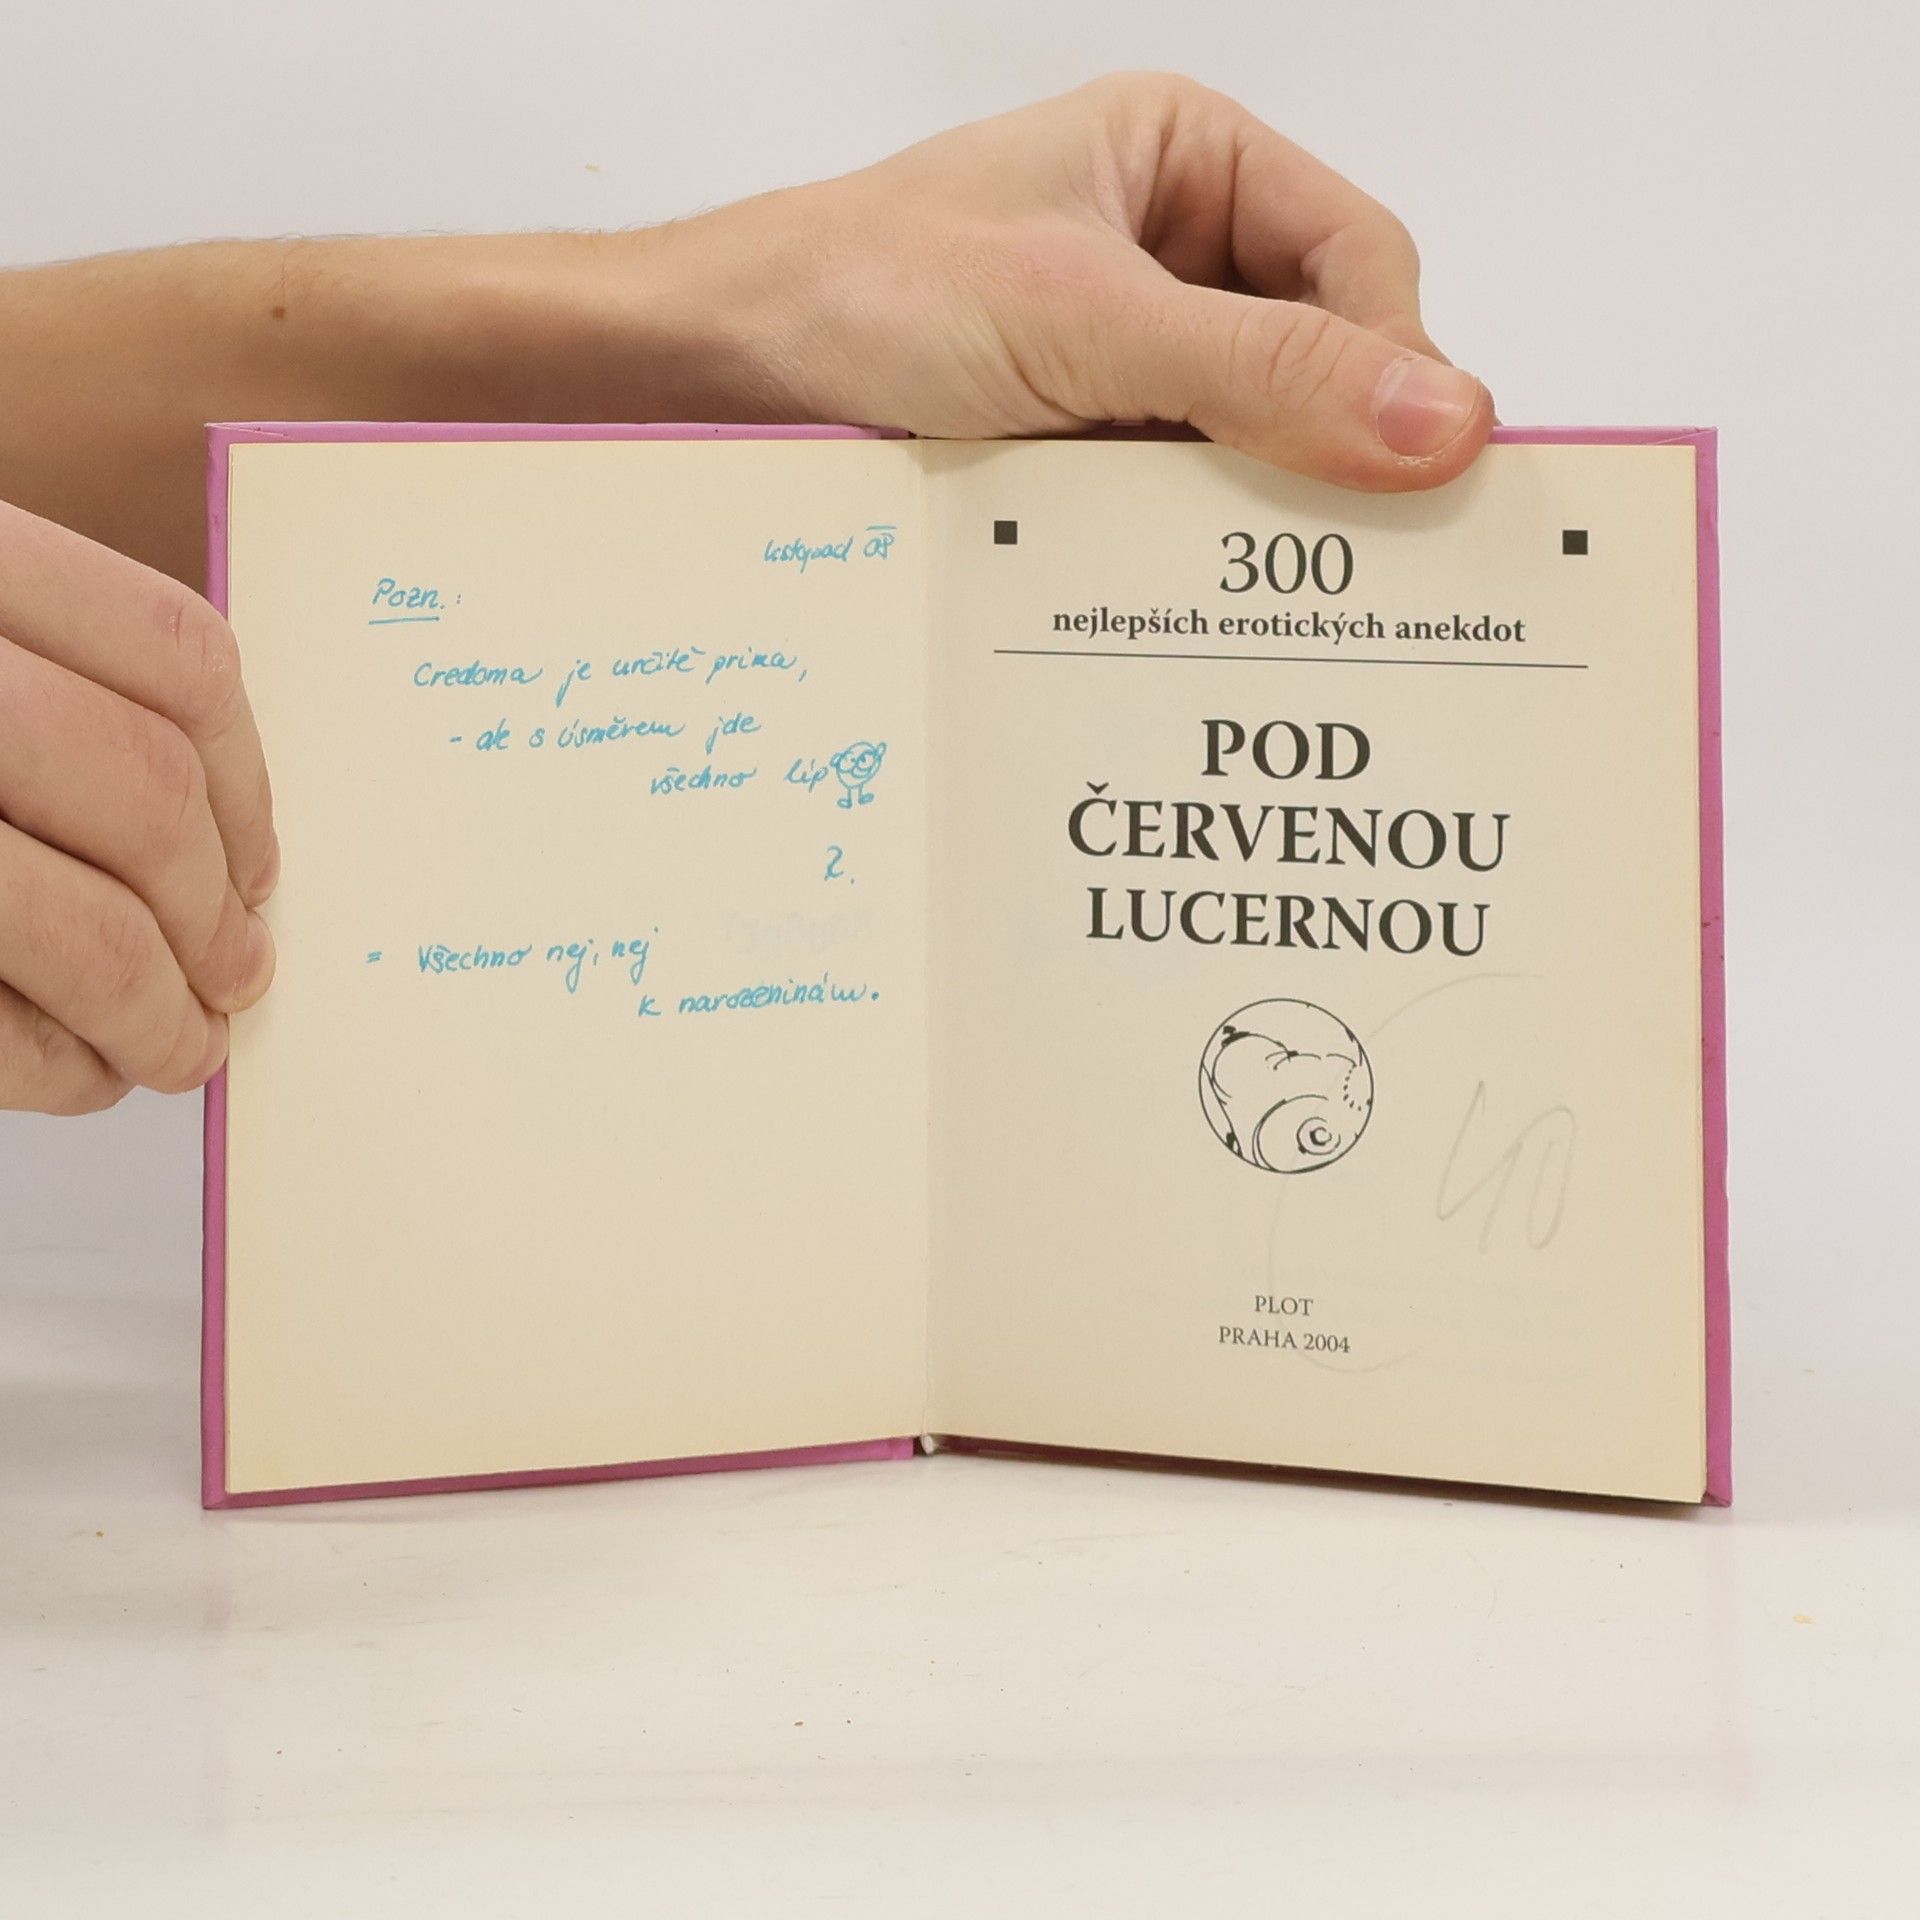 listopad 08
Pozn.:
Credoma je určitě prima,
- ale s úsměrem jde
všechno líp
Z.
= Všechno nej, nej
k narozeninám.
300
nejlepších erotických anekdot
POD
ČERVENOU
LUCERNOU
40
PLOT
PRAHA 2004